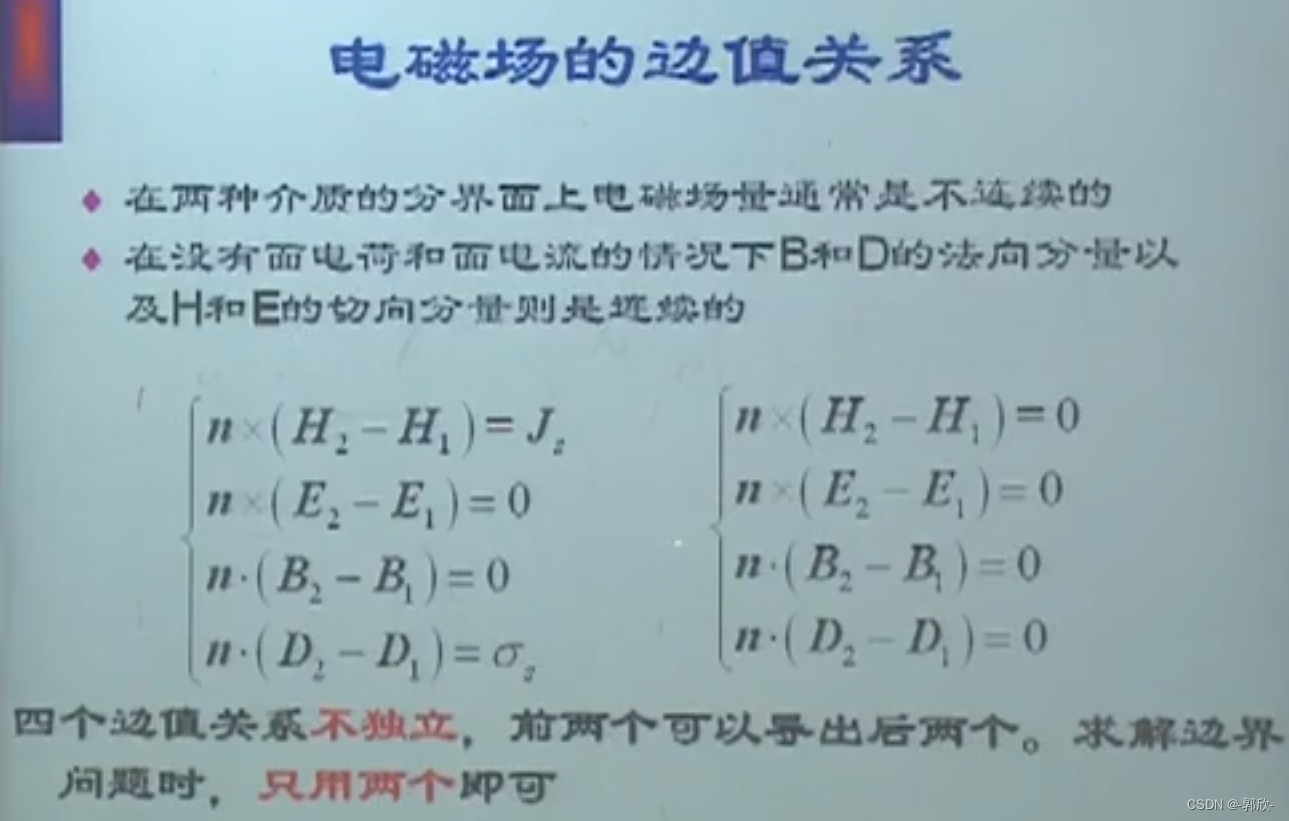 电磁场的边值关系
在两种介质的分界面上电磁场量通常是不连续的
在没有面电荷和面电流的情况下B和D的法向分量以
及H和E的切向分量则是连续的
n×(H₂-H₁)=Jₛ
n×(E₂-E₁)=0
n·(B₂-B₁)=0
n·(D₂-D₁)=σₛ
n×(H₂-H₁)=0
n×(E₂-E₁)=0
n·(B₂-B₁)=0
n·(D₂-D₁)=0
四个边值关系不独立，前两个可以导出后两个。求解边界
问题时，只用两个即可
CSDN @-郭欣-